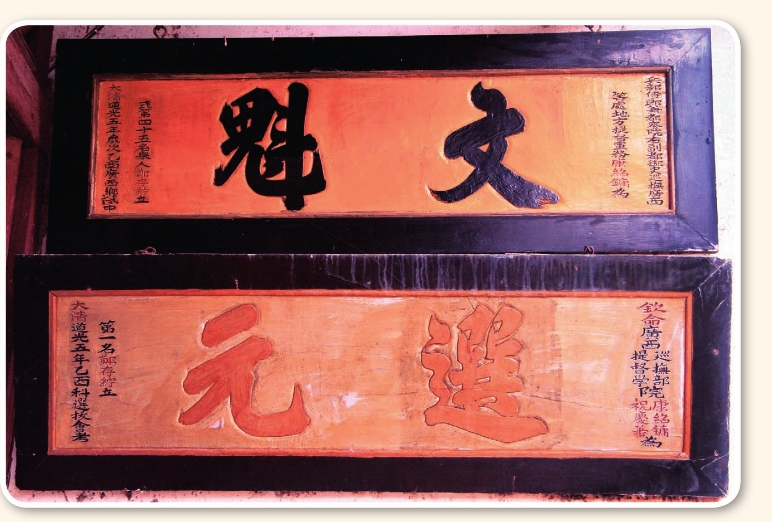 兵部侍郎兼都察院右副都御史巡撫廣西
等處地方提督軍務康紹鏞為
文魁
式第四十五名舉人鄭存紵立
大清道光五年歲次乙酉廣西鄉試中
欽命廣西
巡撫部院康紹鏞為
提督學院祝慶蕃
選元
第一名鄭存紵立
大清道光五年乙酉科選拔會考